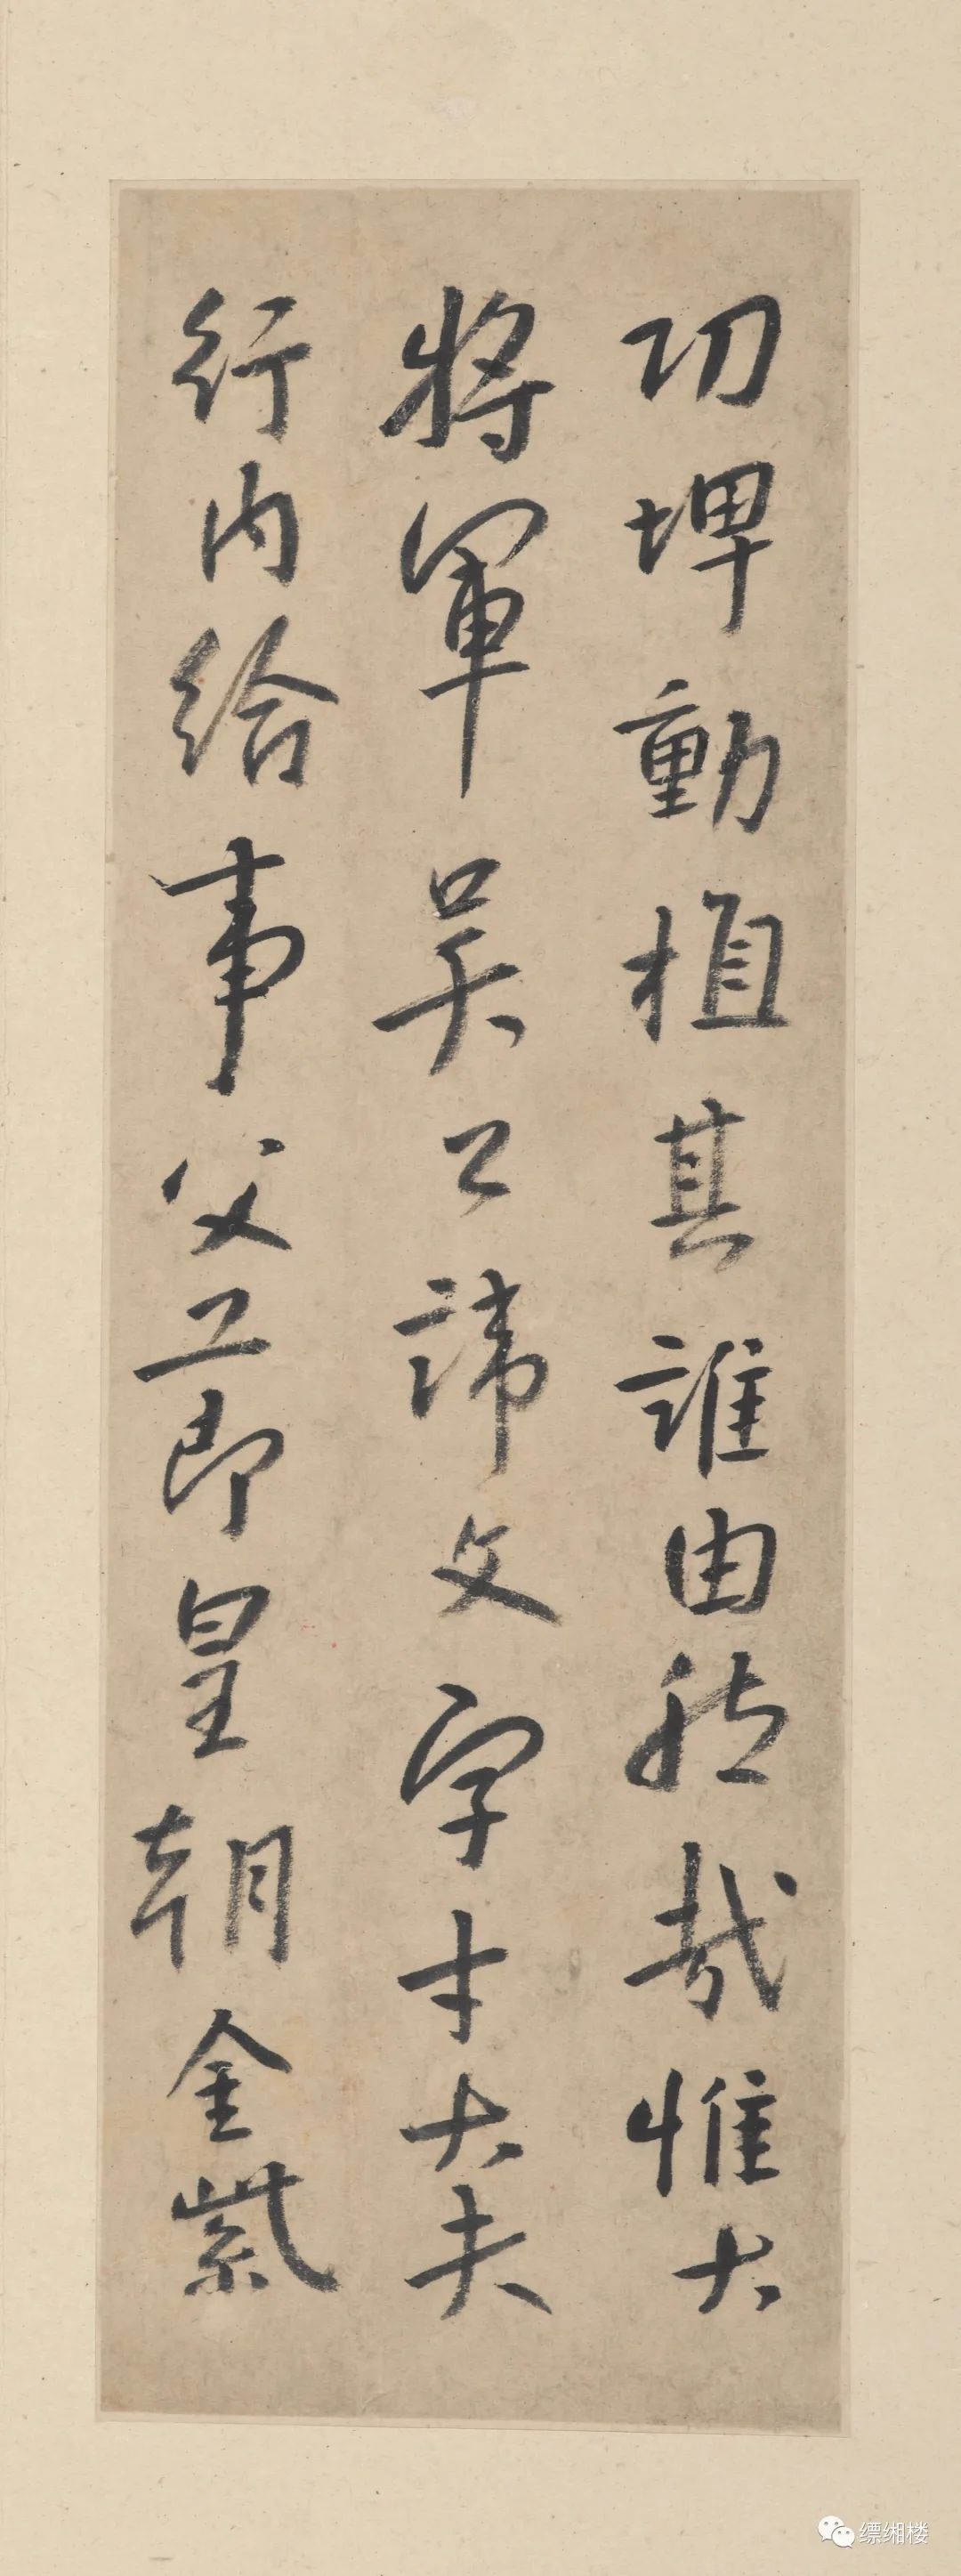 功埤動植其誰由然哉惟大
將軍吳公諱文字才大夫
行內給事父工即皇朝金紫
缥缃楼